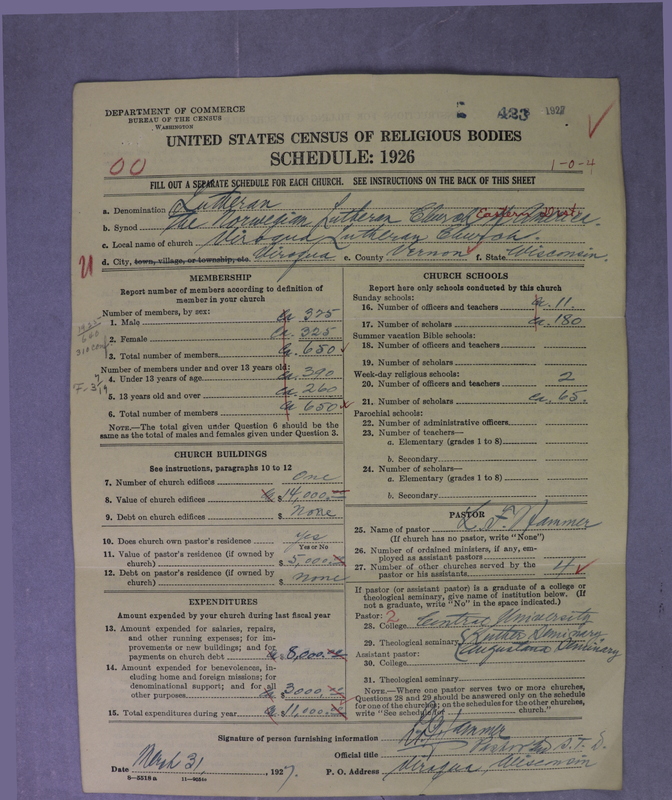 423 1927
DEPARTMENT OF COMMERCE
BUREAU OF THE CENSUS
WASHINGTON
UNITED STATES CENSUS OF RELIGIOUS BODIES
SCHEDULE: 1926
00
1-0-4
FILL OUT A SEPARATE SCHEDULE FOR EACH CHURCH. SEE INSTRUCTIONS ON THE BACK OF THIS SHEET
a. Denomination Lutheran
b. Synod The Norwegian Lutheran Church of America. Eastern Dist
c. Local name of church Viroqua Lutheran Church.
d. City, town, village, or township, etc. Viroqua e. County Vernon f. State Wisconsin.
U
MEMBERSHIP
Report number of members according to definition of
member in your church
Number of members, by sex:
1. Male ca. 375
2. Female ca. 325
3. Total number of members ca. 650
Number of members under and over 13 years old:
4. Under 13 years of age ca. 390
5. 13 years old and over ca. 260
6. Total number of members ca 650
NOTE.—The total given under Question 6 should be the
same as the total of males and females given under Question 3.
CHURCH BUILDINGS
See instructions, paragraphs 10 to 12
7. Number of church edifices One
8. Value of church edifices $ 14,000.
9. Debt on church edifices $ None
10. Does church own pastor's residence yes
Yes or No
11. Value of pastor's residence (if owned by
church) $ 5,000.
12. Debt on pastor's residence (if owned by
church) $ none
EXPENDITURES
Amount expended by your church during last fiscal year
13. Amount expended for salaries, repairs,
and other running expenses; for im-
provements or new buildings; and for
payments on church debt 8,000.
14. Amount expended for benevolences, in-
cluding home and foreign missions; for
denominational support; and for all
other purposes 3000.
15. Total expenditures during year 11,000.
CHURCH SCHOOLS
Report here only schools conducted by this church
Sunday schools:
16. Number of officers and teachers ca. 11.
17. Number of scholars ca. 180
Summer vacation Bible schools:
18. Number of officers and teachers
19. Number of scholars
Week-day religious schools:
20. Number of officers and teachers 2
21. Number of scholars ca. 65.
Parochial schools:
22. Number of administrative officers
23. Number of teachers—
a. Elementary (grades 1 to 8)
b. Secondary
24. Number of scholars—
a. Elementary (grades 1 to 8)
b. Secondary
PASTOR
25. Name of pastor Hammer
(If church has no pastor, write "None")
26. Number of ordained ministers, if any, em-
ployed as assistant pastors
27. Number of other churches served by the
pastor or his assistants 4
If pastor (or assistant pastor) is a graduate of a college or
theological seminary, give name of institution below. (If
not a graduate, write "No" in the space indicated.)
Pastor: 2
28. College Central University
29. Theological seminary Luther Seminary
Augustana Seminary
Assistant pastor:
30. College
31. Theological seminary
NOTE.—Where one pastor serves two or more churches,
Questions 28 and 29 should be answered only on the schedule
for one of the churches; on the schedules for the other churches,
write "See schedule for church."
Signature of person furnishing information Hammer
Official title Pastor
Date March 31, 1927. P. O. Address Viroqua, Wisconsin